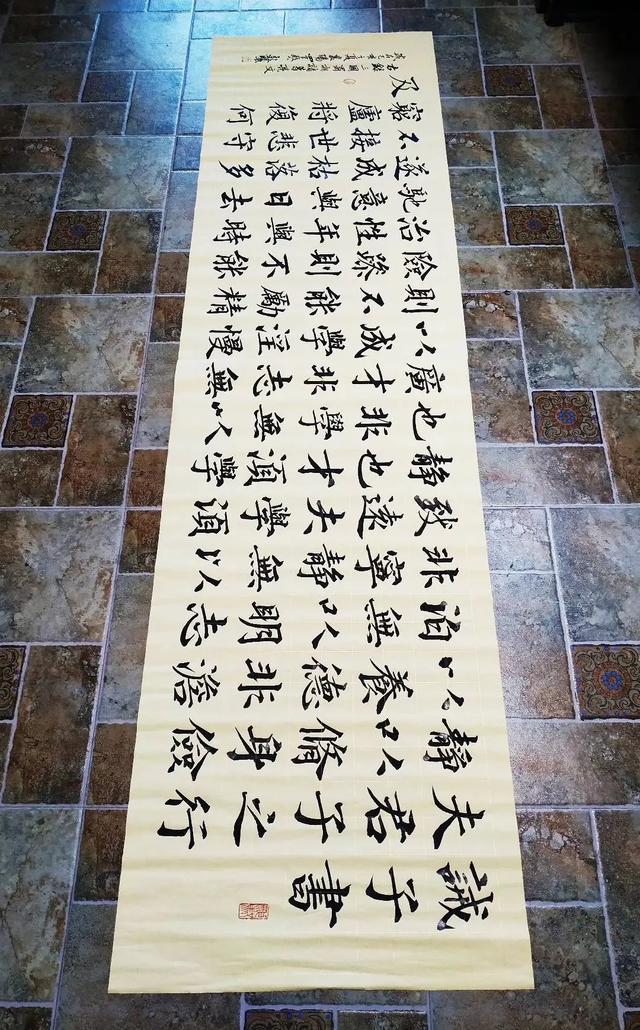 誡子書
夫君子之行
靜以脩身儉
以養德非澹
泊無以明志
非寧靜無以
致遠夫學須
靜也才須學
也非學無以
廣才非志無
以成學淫慢
則不能勵精
險躁則不能
治性年與時
馳意與日去
遂成枯落多
不接世悲守
窮廬將復何
及
右錄三國